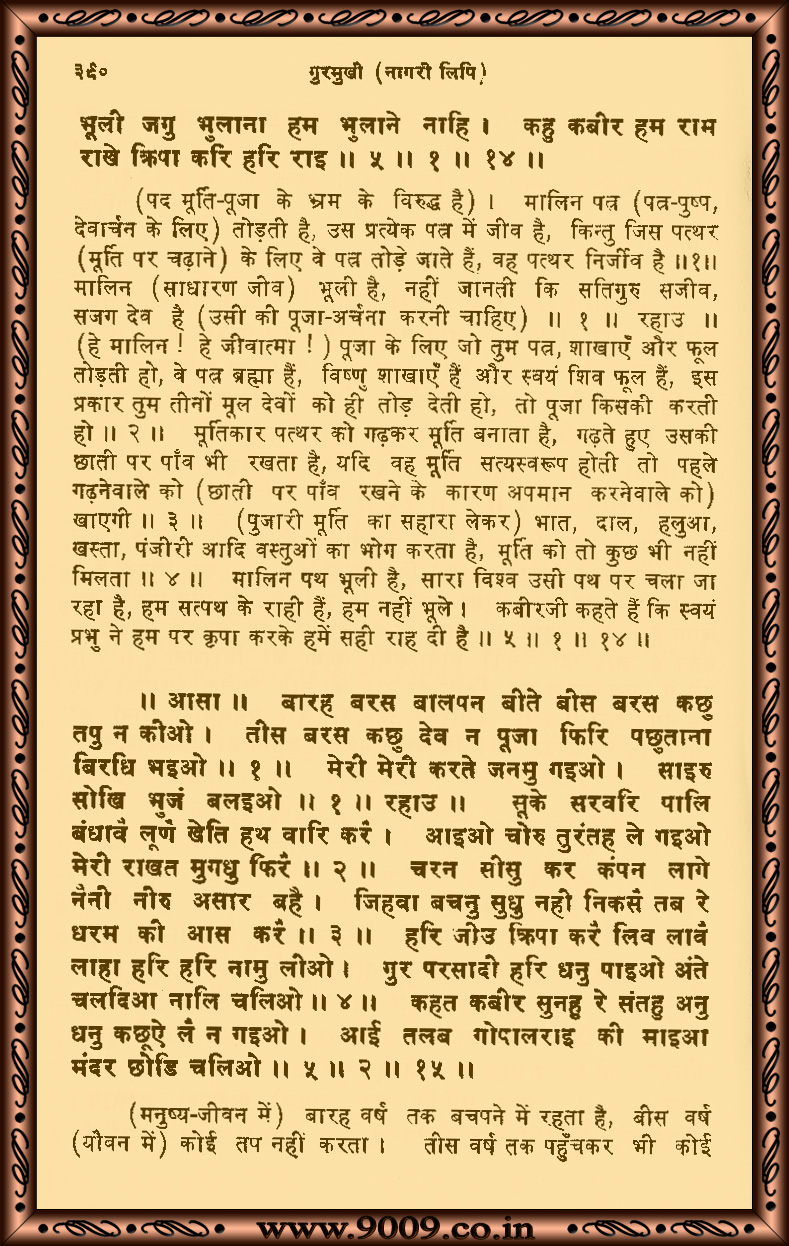 ३९० गुरमुखी (नागरी लिपि)
भूली जगु भुलाना हम भुलाने नाहि। कहु कबीर हम राम
राखे क्रिपा करि हरि राइ ॥ ५ ॥ १ ॥ १४ ॥
(पद मूर्ति-पूजा के भ्रम के विरुद्ध है)। मालिन पत्र (पत्र-पुष्प,
देवार्चन के लिए) तोड़ती है, उस प्रत्येक पत्र में जीव है, किन्तु जिस पत्थर
(मूर्ति पर चढ़ाने) के लिए वे पत्र तोड़े जाते हैं, वह पत्थर निर्जीव है ॥१॥
मालिन (साधारण जीव) भूली है, नहीं जानती कि सतिगुरु सजीव,
सजग देव है (उसी की पूजा-अर्चना करनी चाहिए) ॥ १ ॥ रहाउ ॥
(हे मालिन! हे जीवात्मा!) पूजा के लिए जो तुम पत्र, शाखाएँ और फूल
तोड़ती हो, वे पत्र ब्रह्मा हैं, विष्णु शाखाएँ हैं और स्वयं शिव फूल हैं, इस
प्रकार तुम तीनों मूल देवों को ही तोड़ देती हो, तो पूजा किसकी करती
हो ॥ २ ॥ मूर्तिकार पत्थर को गढ़कर मूर्ति बनाता है, गढ़ते हुए उसकी
छाती पर पाँव भी रखता है, यदि वह मूर्ति सत्यस्वरूप होती तो पहले
गढ़नेवाले को (छाती पर पाँव रखने के कारण अपमान करनेवाले को)
खाएगी ॥ ३ ॥ (पुजारी मूर्ति का सहारा लेकर) भात, दाल, हलुआ,
खस्ता, पंजीरी आदि वस्तुओं का भोग करता है, मूर्ति को तो कुछ भी नहीं
मिलता ॥ ४ ॥ मालिन पथ भूली है, सारा विश्व उसी पथ पर चला जा
रहा है, हम सत्पथ के राही हैं, हम नहीं भूले। कबीरजी कहते हैं कि स्वयं
प्रभु ने हम पर कृपा करके हमें सही राह दी है ॥ ५ ॥ १ ॥ १४ ॥
॥ आसा ॥ बारह बरस बालपन बीते बीस बरस कछु
तपु न कीओ। तीस बरस कछु देव न पूजा फिरि पछुताना
बिरधि भइओ ॥ १ ॥ मेरी मेरी करते जनमु गइओ। साइरु
सोखि भुजं बलइओ ॥ १ ॥ रहाउ ॥ सूके सरवरि पालि
बंधावै लूणै खेति हथ वारि करै। आइओ चोरु तुरंतह ले गइओ
मेरी राखत मुगधु फिरै ॥ २ ॥ चरन सीसु कर कंपन लागे
नैनी नीरु असार बहै। जिहवा बचनु सुधु नही निकसै तब रे
धरम की आस करै ॥ ३ ॥ हरि जीउ क्रिपा करै लिव लावै
लाहा हरि हरि नामु लीओ। गुर परसादी हरि धनु पाइओ अंते
चलदिआ नालि चलिओ ॥ ४ ॥ कहत कबीर सुनहु रे संतहु अनु
धनु कछूऐ लै न गइओ। आई तलब गोपालराइ की माइआ
मंदर छोडि चलिओ ॥ ५ ॥ २ ॥ १५ ॥
(मनुष्य-जीवन में) बारह वर्ष तक बचपने में रहता है, बीस वर्ष
(यौवन में) कोई तप नहीं करता। तीस वर्ष तक पहुँचकर भी कोई
www.9009.co.in